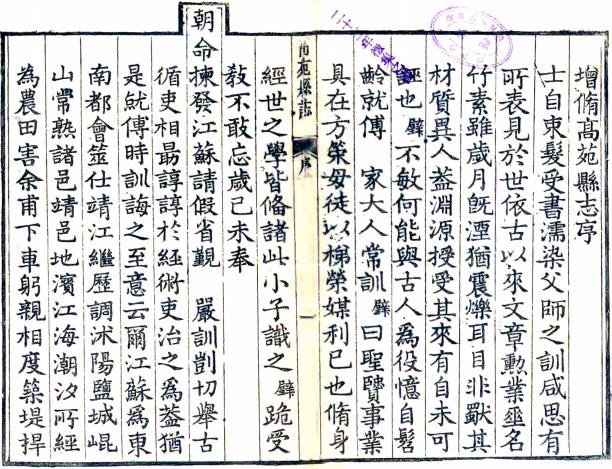 增脩髙苑縣志序
士自束髮受書濡染父師之訓咸思有
所表見於世依古以來文章勲業垂名
竹素雖歲月旣湮猶震爍耳目非獸其
材質異人葢淵源授受其來有自未可
誣也璧不敏何能與古人為役憶自髫
齡就傅 家大人常訓璧曰聖賢事業
具在方策毋徒以梯榮媒利已也脩身
髙苑縣志
序
經世之學皆備諸此小子識之璧跪受
敎不敢忘歲己未奉
朝命揀發江蘇請假省覲 嚴訓剴切舉古
循吏相最諄諄於經術吏治之為葢猶
是就傅時訓誨之至意云爾江蘇為東
南都會筮仕靖江繼歷調沭陽鹽城崐
山常熟諸邑靖邑地濱江海潮汐所經
為農田害余甫下車躬親相度築堤捍